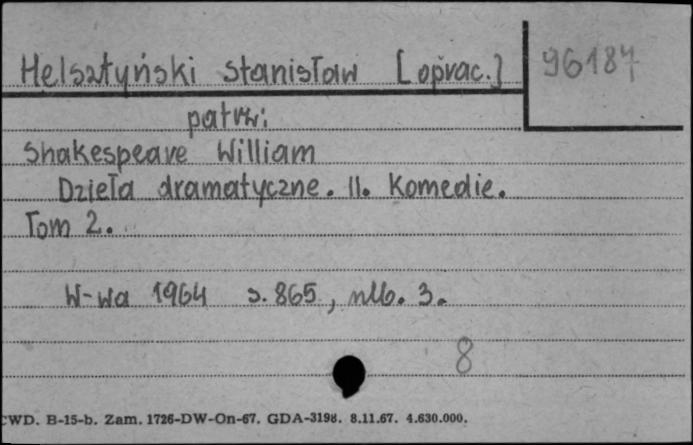 Helsztyński Stanisław [oprac.]
96187
patrz:
Shakespeare William
Dzieła dramatyczne. II. Komedie.
Tom 2.
W-wa 1964 s. 865, nlb. 3.
8
CWD. B-15-b. Zam. 1726-DW-On-67. GDA-3198. 8.11.67. 4.630.000.